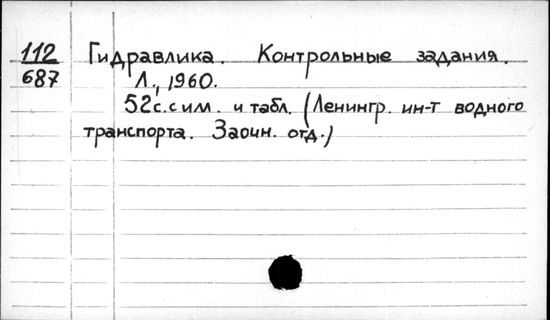 112 Гидравлика. Контрольные задания.
687 Л., 1960.
52с. с илл. и табл. (Ленингр. ин-т водного
транспорта. Заочн. отд.)